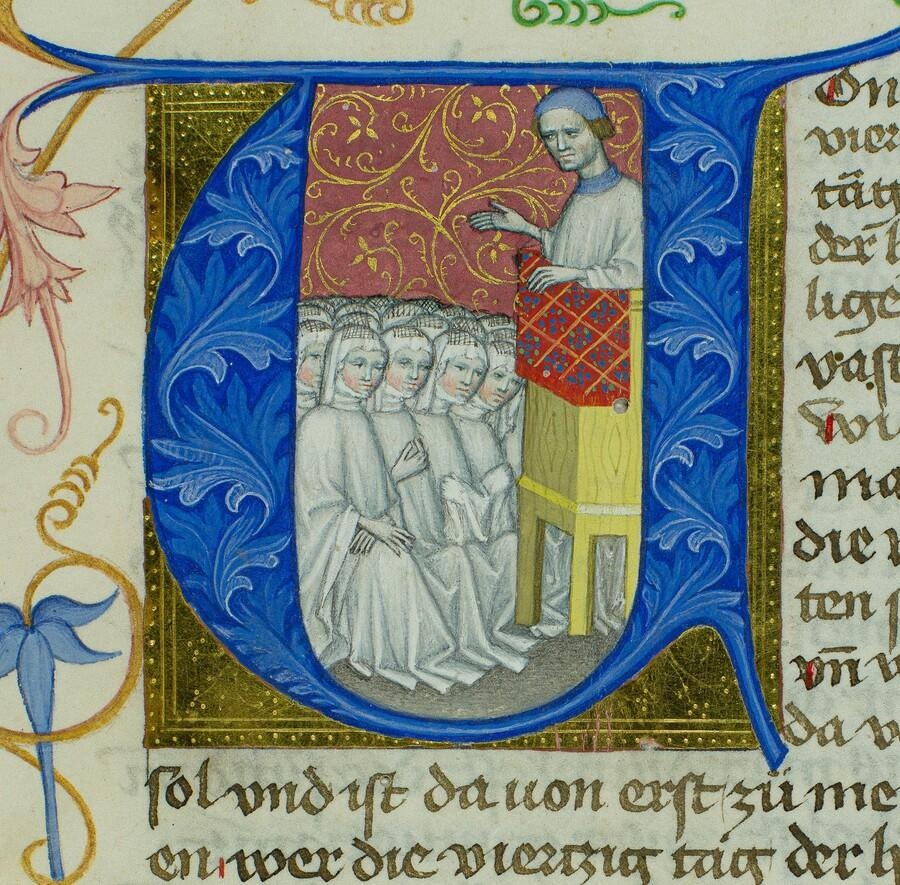 On
vier
täg
der h
lige
vast
wi
ma
die v
ten s
vn̄ v
da v
sol vnd ist da uon erst zü me
en wer die vierzig täg der h